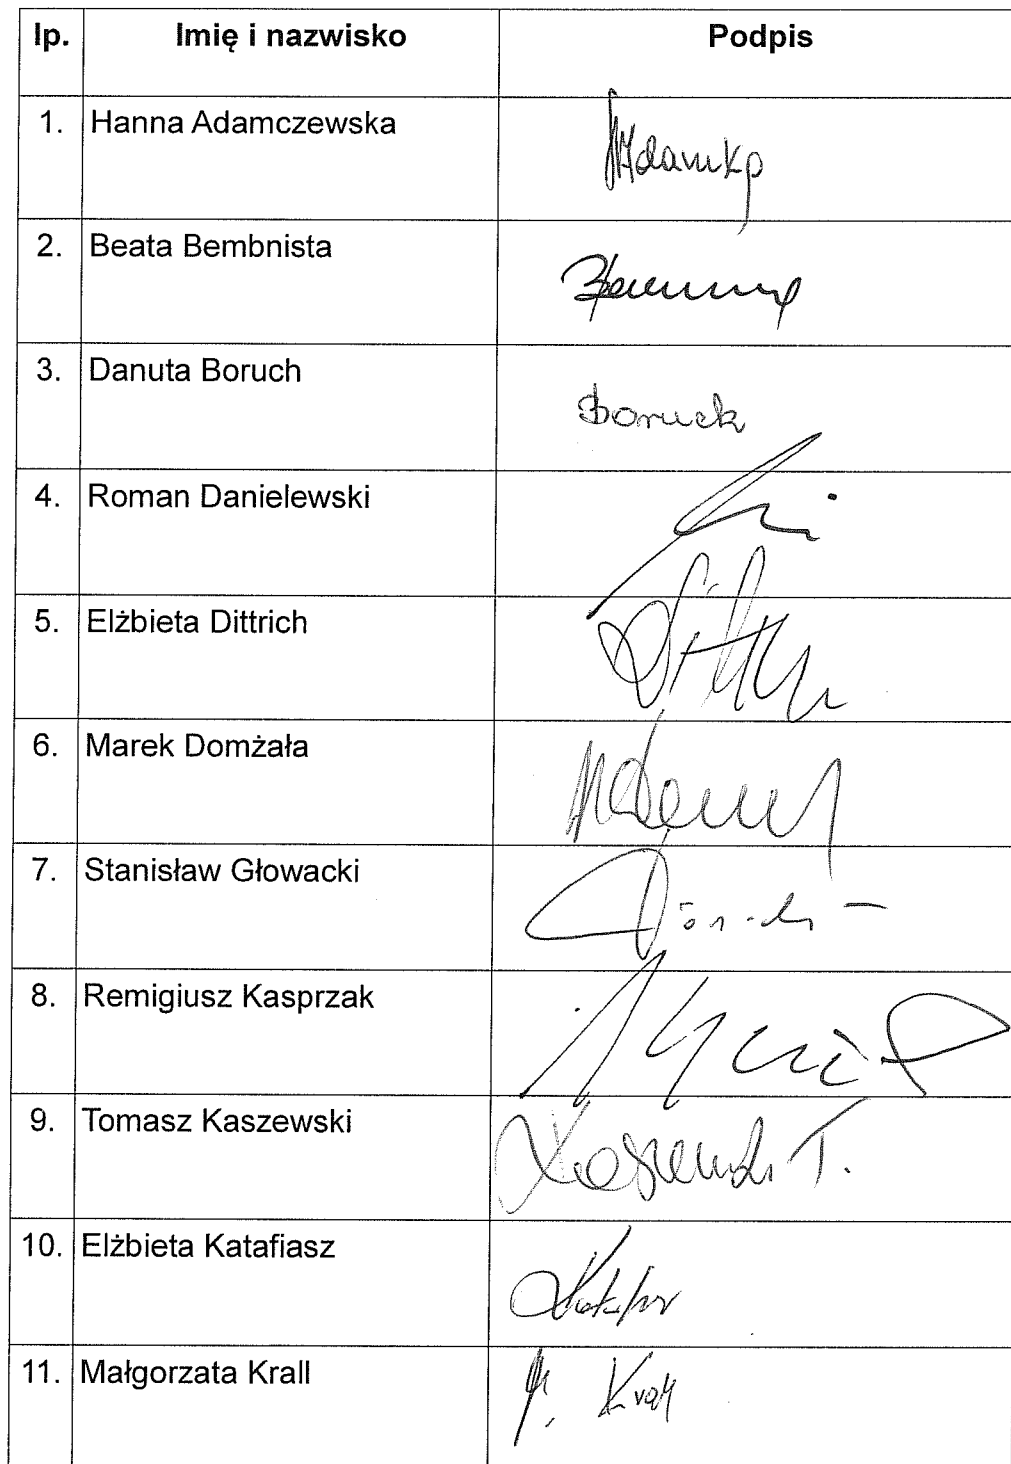 lp. Imię i nazwisko Podpis
1. Hanna Adamczewska
2. Beata Bembnista
3. Danuta Boruch Boruch
4. Roman Danielewski
5. Elżbieta Dittrich
6. Marek Domżała
7. Stanisław Głowacki
8. Remigiusz Kasprzak
9. Tomasz Kaszewski Kaszewski T.
10. Elżbieta Katafiasz
11. Małgorzata Krall M. Krall